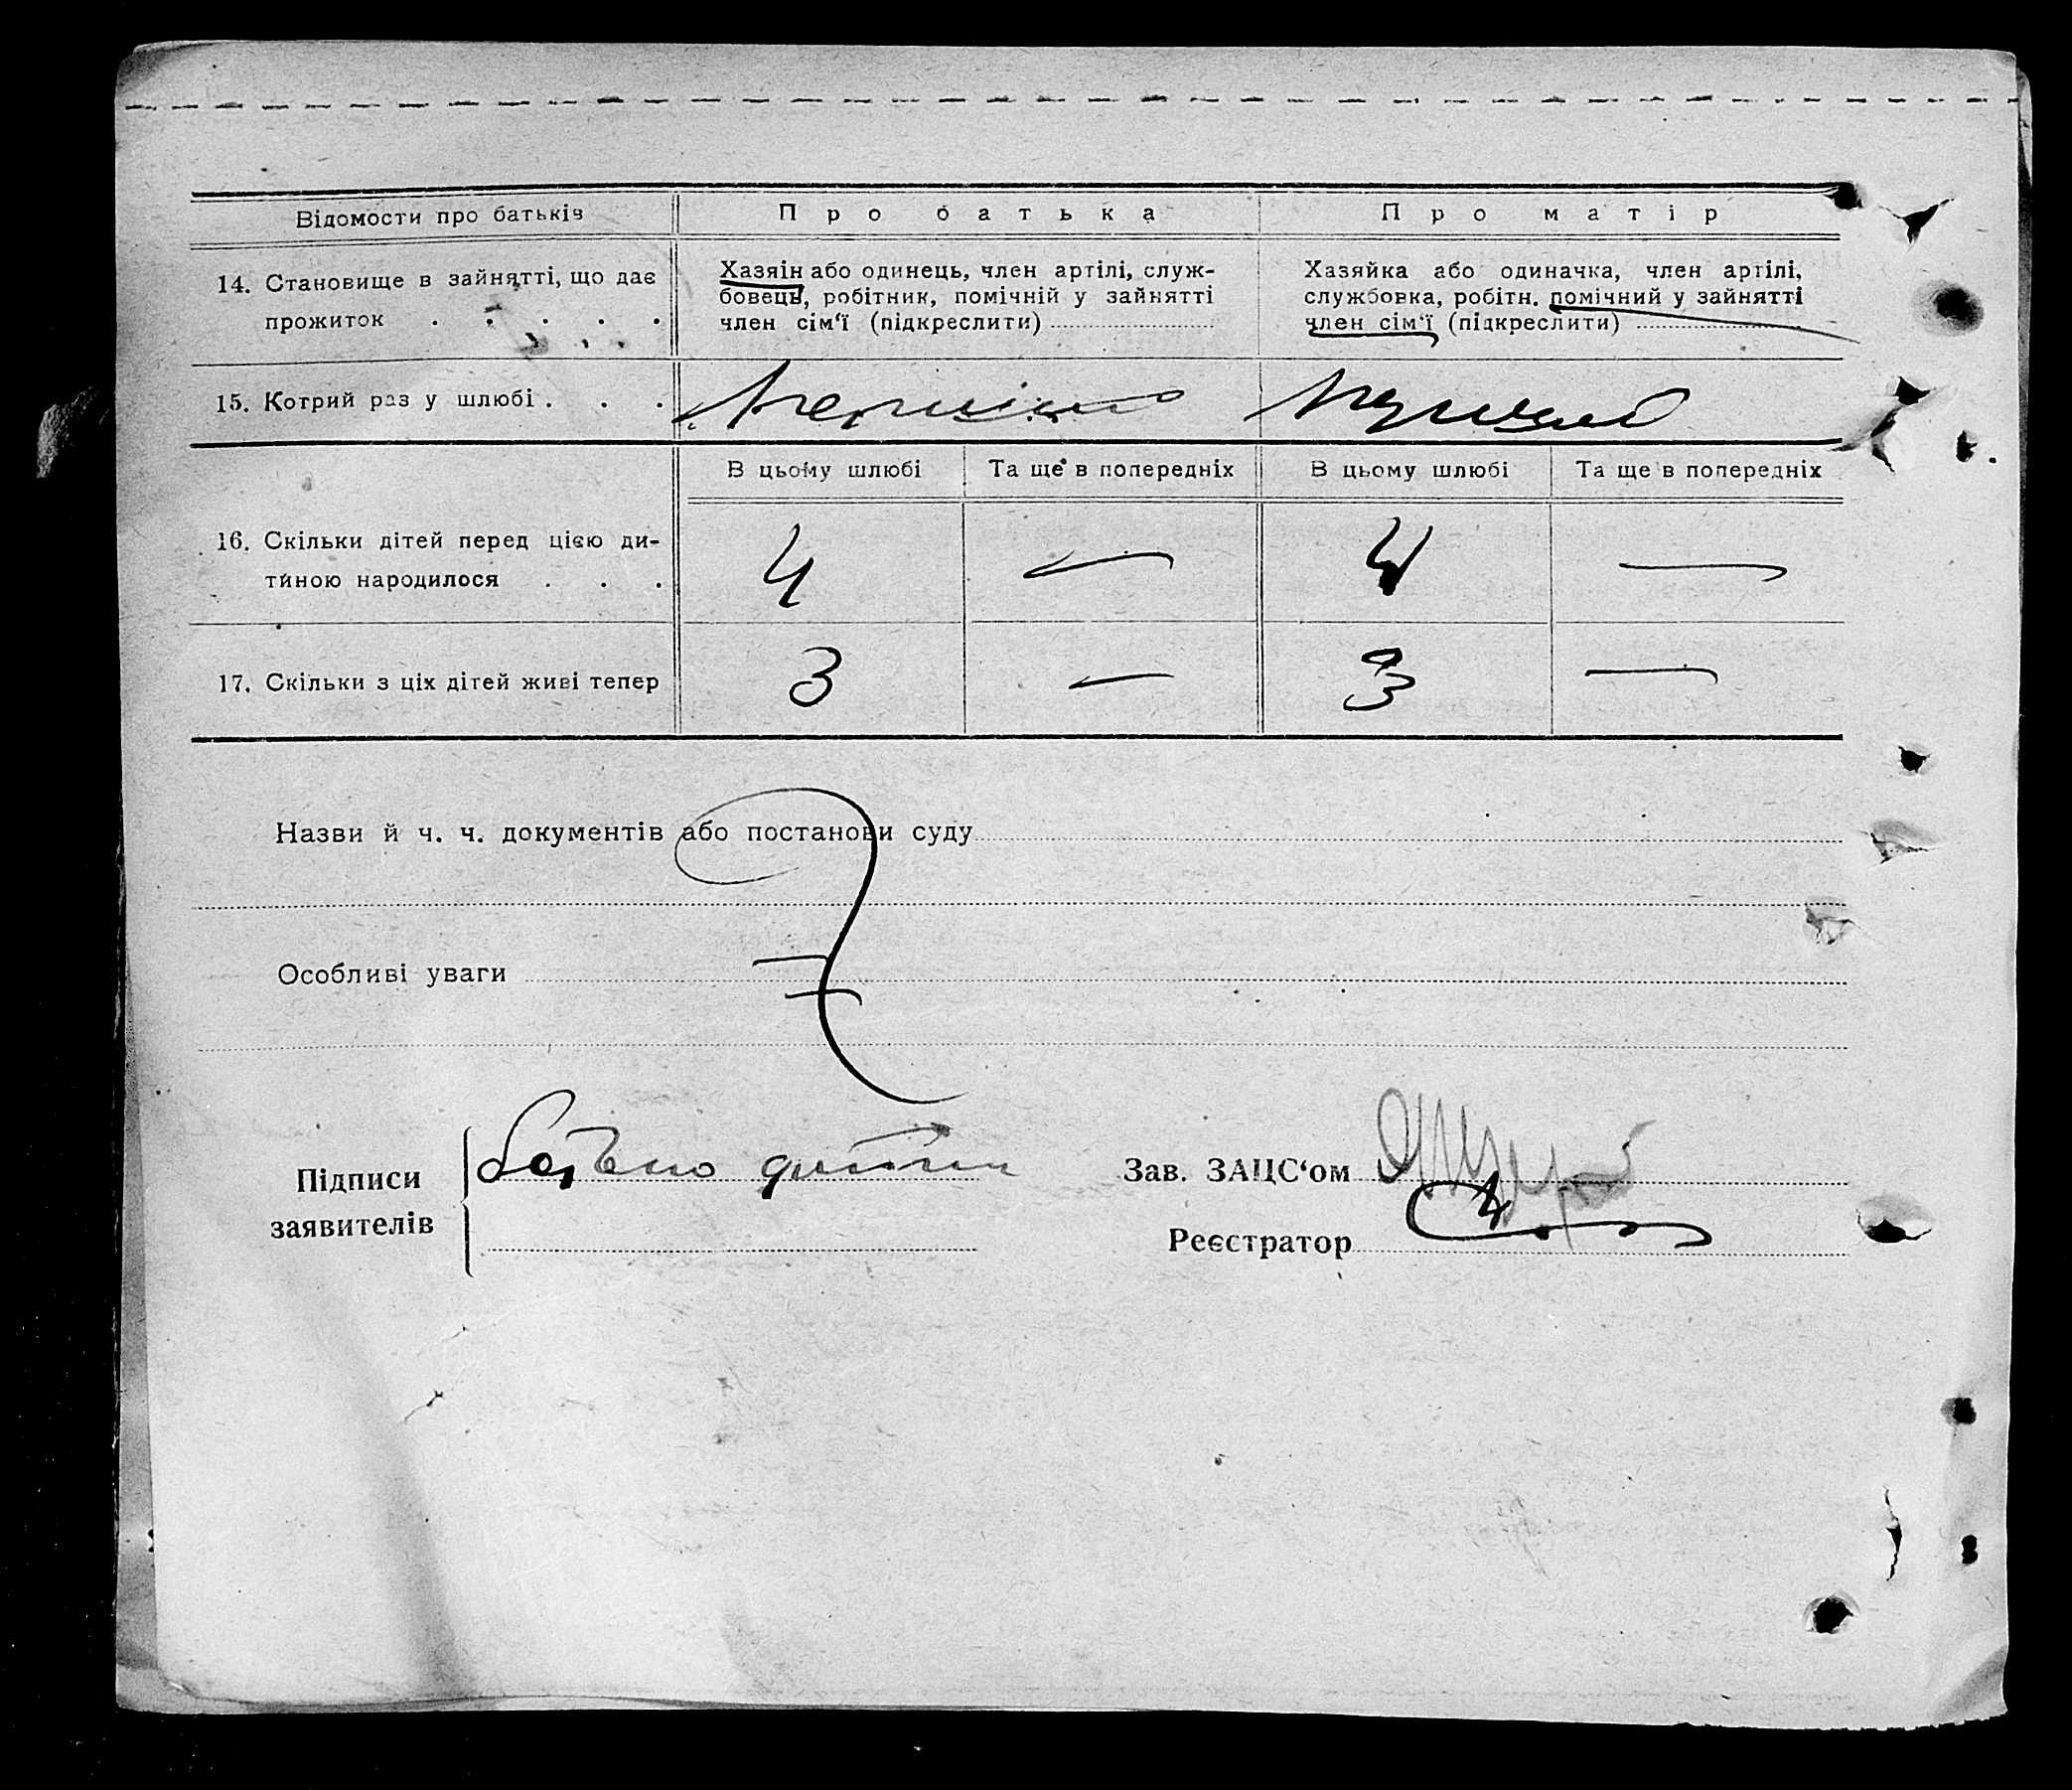 Відомости про батьків
Про батька
Про матір
14. Становище в зайнятті, що дає
прожиток . . . . .
Хазяін або одинець, член артілі, служ-
бовець, робітник, помічній у зайнятті
член сім'ї (підкреслити)
Хазяйка або одиначка, член артілі,
службовка, робітн. помічний у зайнятті
член сім'ї (підкреслити)
15. Котрий раз у шлюбі . . .
В цьому шлюбі
Та ще в попередніх
В цьому шлюбі
Та ще в попередніх
16. Скільки дітей перед цією ди-
тиною народилося . . .
4 — 4 —
17. Скільки з ціх дітей живі тепер
3 — 3 —
Назви й ч. ч. документів або постанови суду
Особливі уваги
Підписи
заявителів
батько
Зав. ЗАЦС'ом
Реєстратор